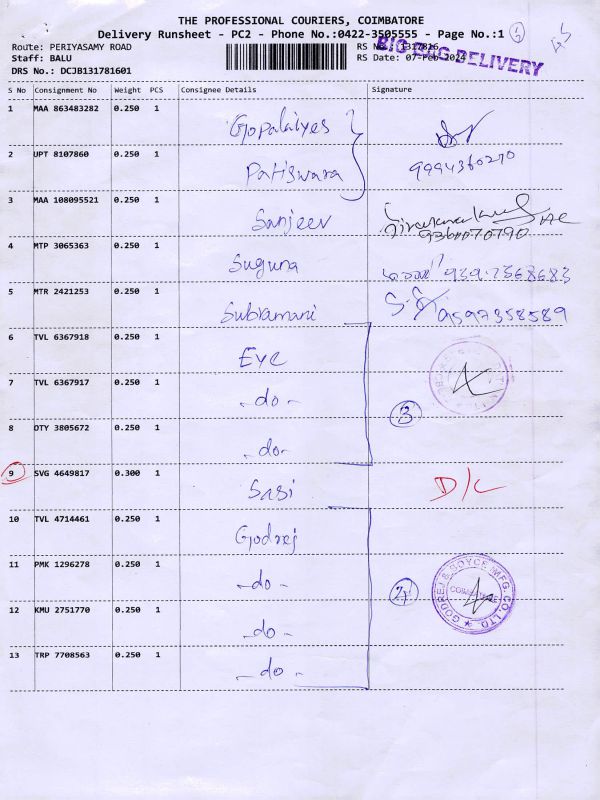 THE PROFESSIONAL COURIERS, COIMBATORE
Delivery Runsheet - PC2 - Phone No.:0422-3505555 - Page No.:1
Route: PERIYASAMY ROAD
RS No.: 1317816
Staff: BALU
RS Date: 07-Feb-2024
DELIVERY
DRS No.: DCJB131781601
S No Consignment No Weight PCS Consignee Details Signature
1 MAA 863483282 0.250 1
2 UPT 8107860 0.250 1 Patiswara 9994360270
3 MAA 108095521 0.250 1 Sanjeev 9360070790
4 MTP 3065363 0.250 1 Suguna
5 MTR 2421253 0.250 1 Subramani 9597358589
6 TVL 6367918 0.250 1 Eye
7 TVL 6367917 0.250 1 -do- 3
8 OTY 3805672 0.250 1 -do-
9 SVG 4649817 0.300 1 Sasi D/L
10 TVL 4714461 0.250 1 Godrej
11 PMK 1296278 0.250 1 -do-
GODREJ & BOYCE MFG. CO. LTD.
12 KMU 2751770 0.250 1 -do-
13 TRP 7708563 0.250 1 -do-